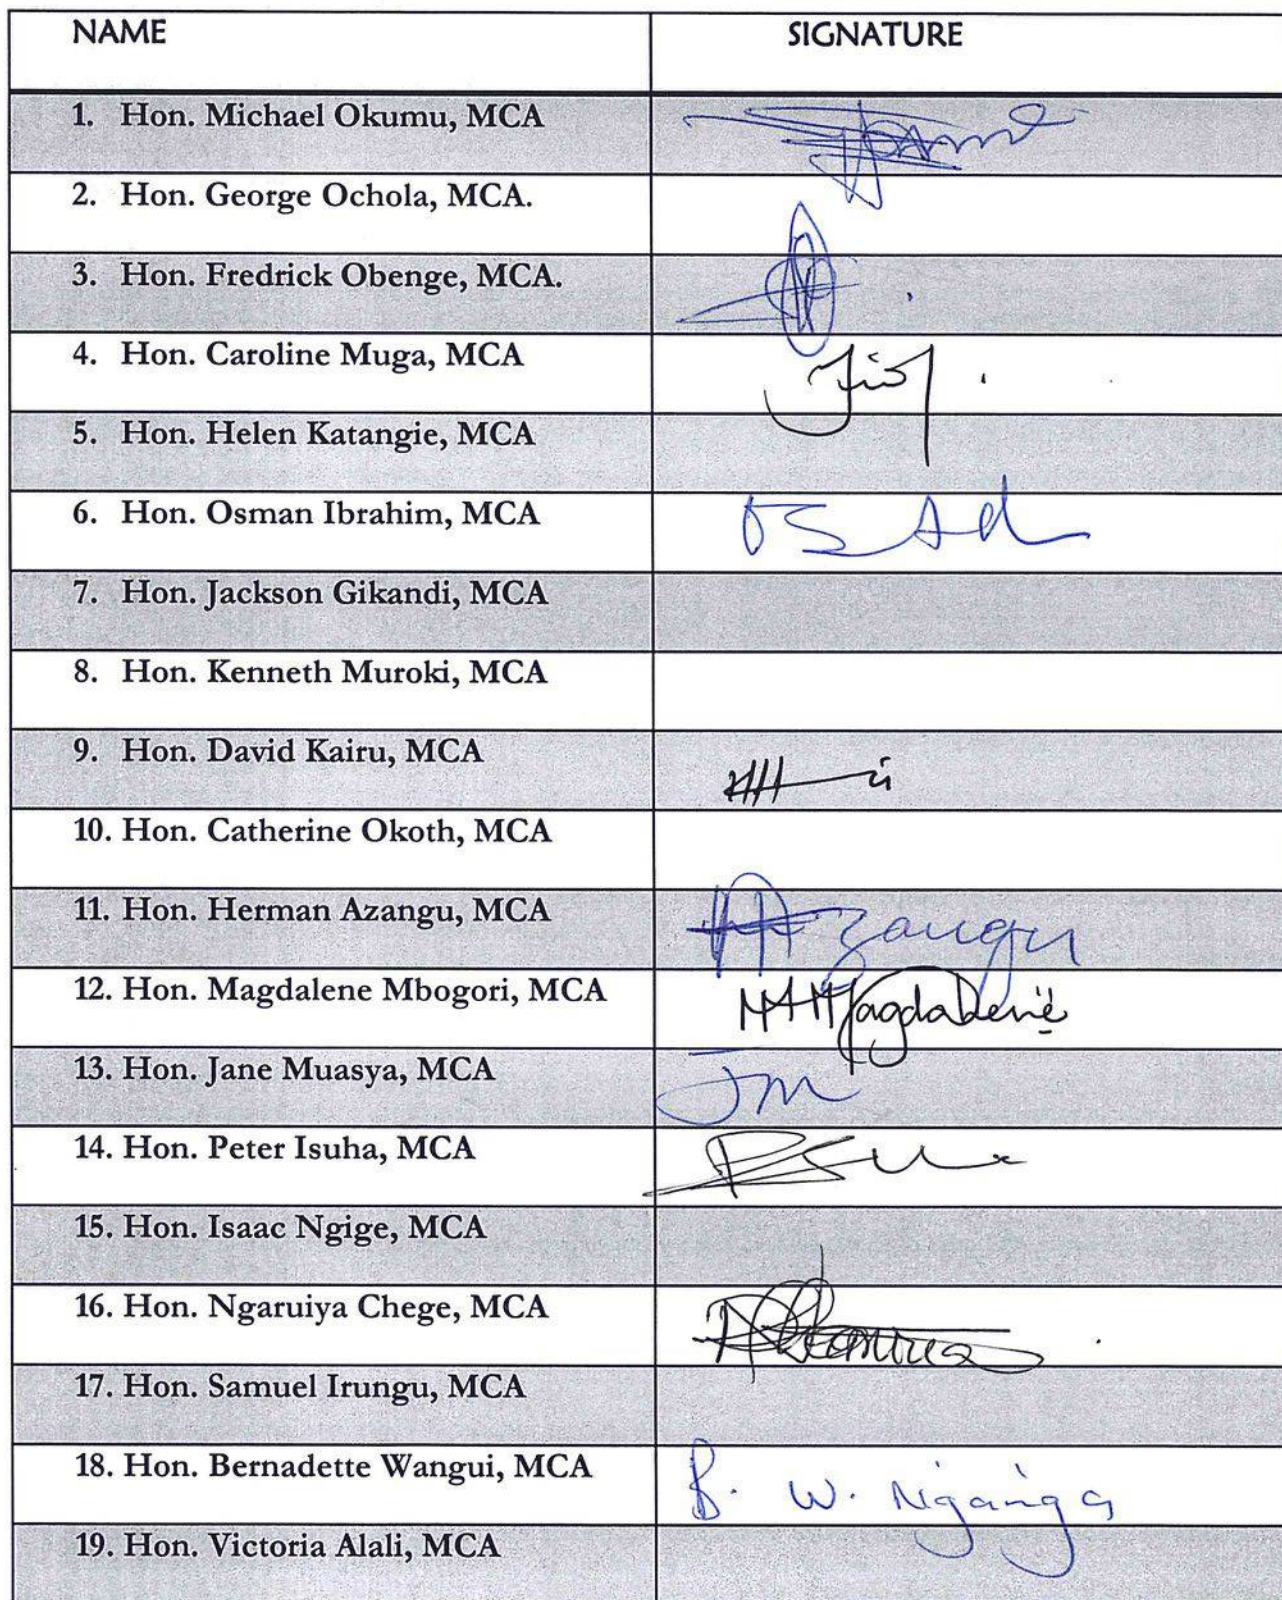 NAME SIGNATURE
1. Hon. Michael Okumu, MCA
2. Hon. George Ochola, MCA.
3. Hon. Fredrick Obenge, MCA.
4. Hon. Caroline Muga, MCA
5. Hon. Helen Katangie, MCA
6. Hon. Osman Ibrahim, MCA
7. Hon. Jackson Gikandi, MCA
8. Hon. Kenneth Muroki, MCA
9. Hon. David Kairu, MCA
10. Hon. Catherine Okoth, MCA
11. Hon. Herman Azangu, MCA Azangu
12. Hon. Magdalene Mbogori, MCA Magdalene
13. Hon. Jane Muasya, MCA Jm
14. Hon. Peter Isuha, MCA
15. Hon. Isaac Ngige, MCA
16. Hon. Ngaruiya Chege, MCA
17. Hon. Samuel Irungu, MCA
18. Hon. Bernadette Wangui, MCA B. W. Ng'ang'a
19. Hon. Victoria Alali, MCA